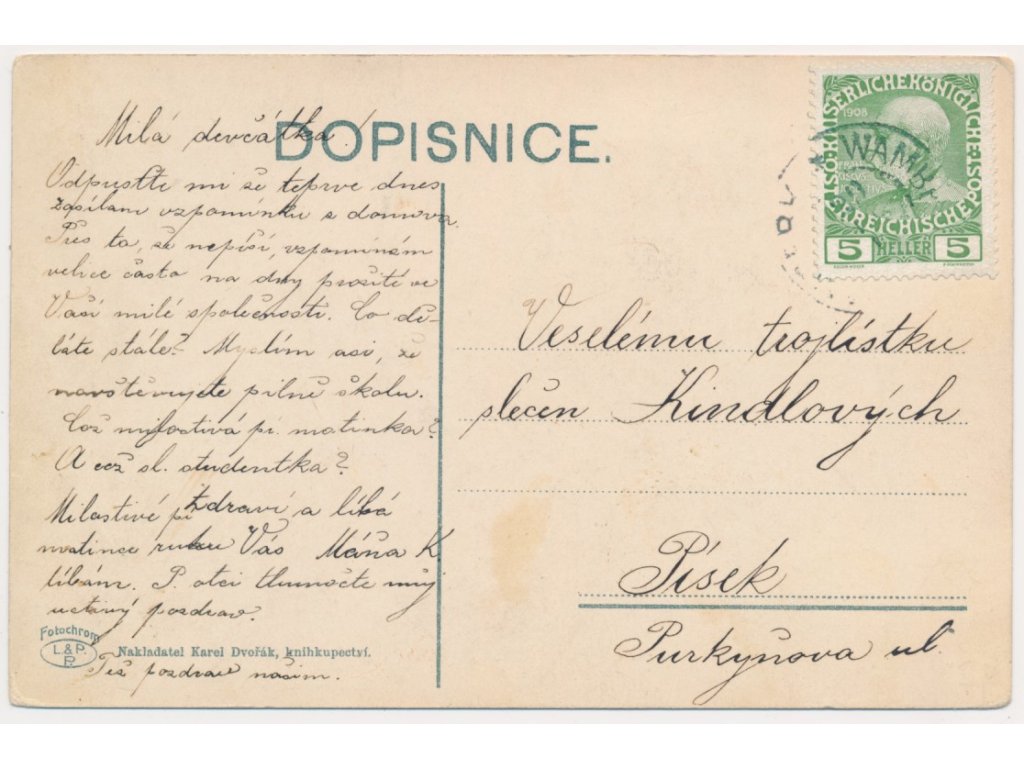 DOPISNICE.
Milá děvčátka!
Odpusťte mi že teprve dnes
zasílám vzpomínku z domova.
Přes to, že nepíši, vzpomínám
velice často na dny prožité ve
Vaší milé společnosti. Co dě-
láte stále? Myslím asi, že
navštěvujete pilně školu.
Což milostivá pí. matinka?
A což sl. studentka?
Milostivé pí
matince ruku
líbám. P. otci tlumočte můj
uctivý pozdrav.
Zdraví a líbá
Vás Máňa K
Též pozdrav našim.
Fotochrom
L.&P.
P.
Nakladatel Karel Dvořák, knihkupectví.
KAISERLICHE KÖNIGLICHE
ÖSTERREICHISCHE POST
1908
5 HELLER 5
WAMB
Veselému trojlístku
slečen Kindlových
Písek
Purkyňova ul.